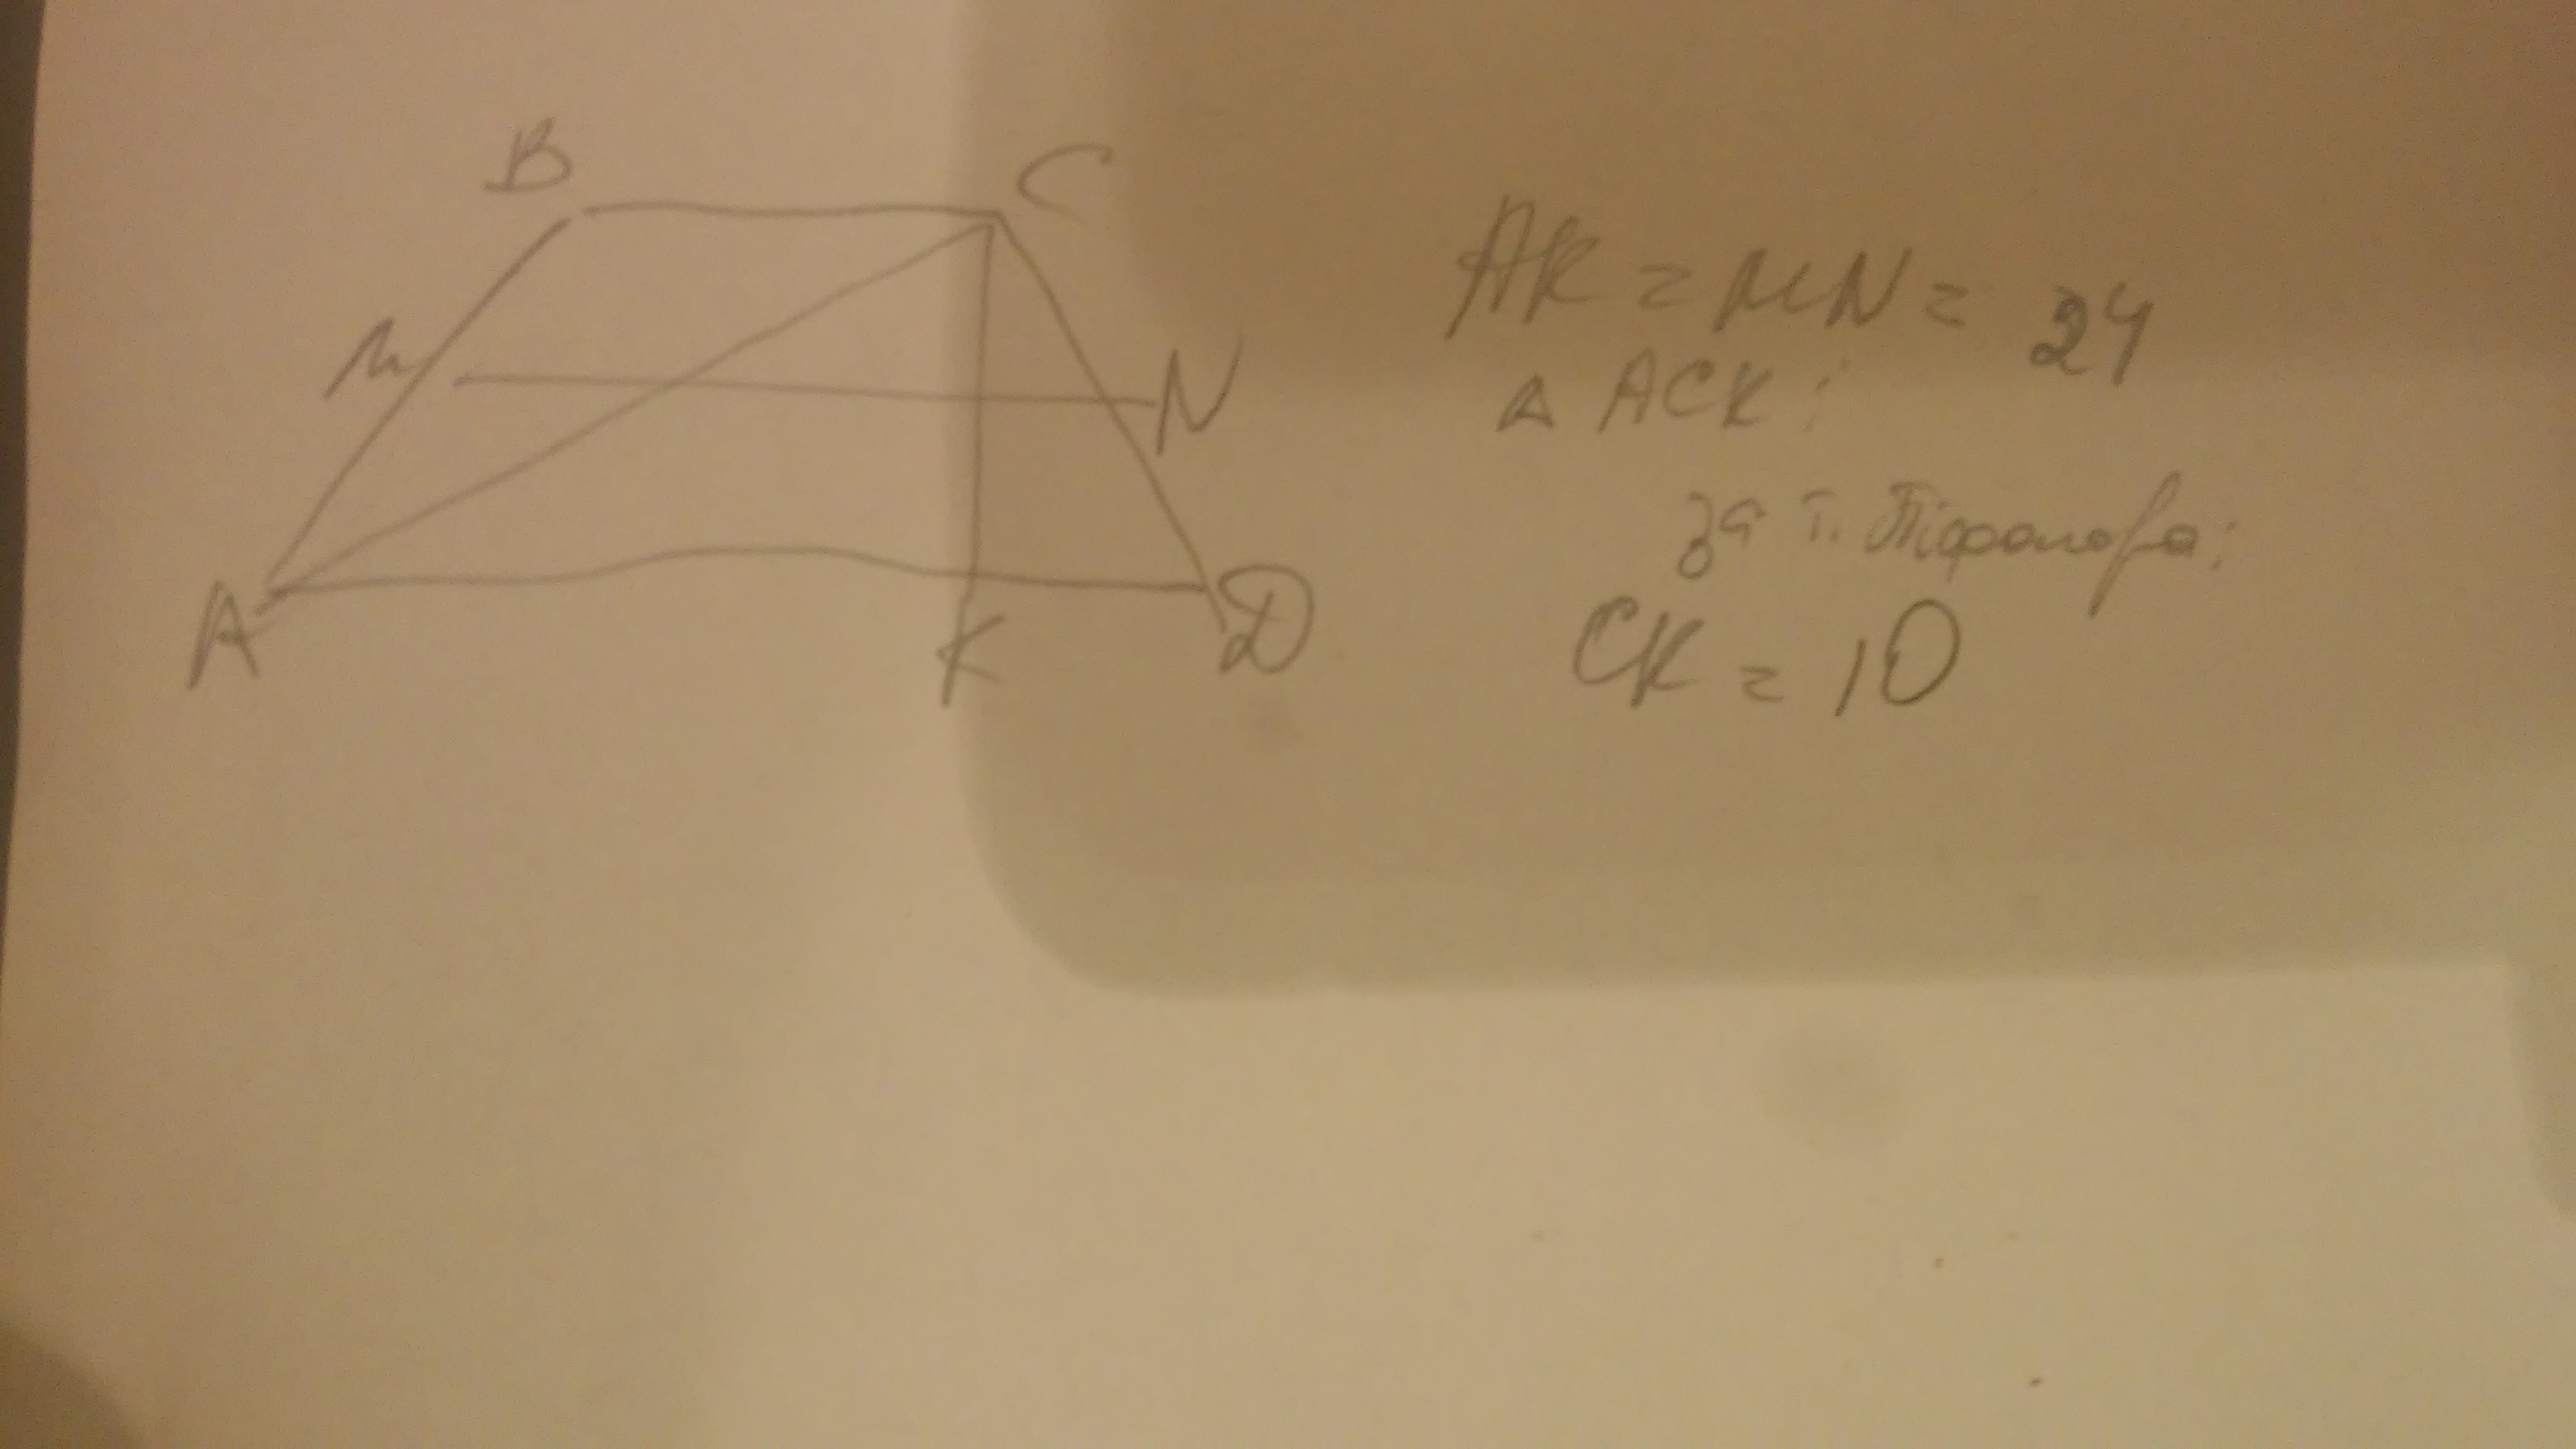 B C
M N
A K D
AK = MN = 24
△ ACK:
за т. Піфагора:
CK = 10